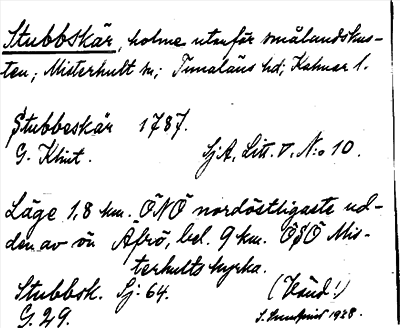 Stubbskär, holme utanför smålandskus-
ten; Misterhult sn; Tunaläns hd; Kalmar l.
Stubbeskär 1787.
G. Klint. SjA, Litt. V, N:o 10.
Läge 1,8 km. ÖNÖ nordöstligaste ud-
den av ön Äfrö, bel. 9 km. ÖSÖ Mis-
terhults kyrka.
Stubbsk. Sj. 64. (Vänd!)
G 29. 1928